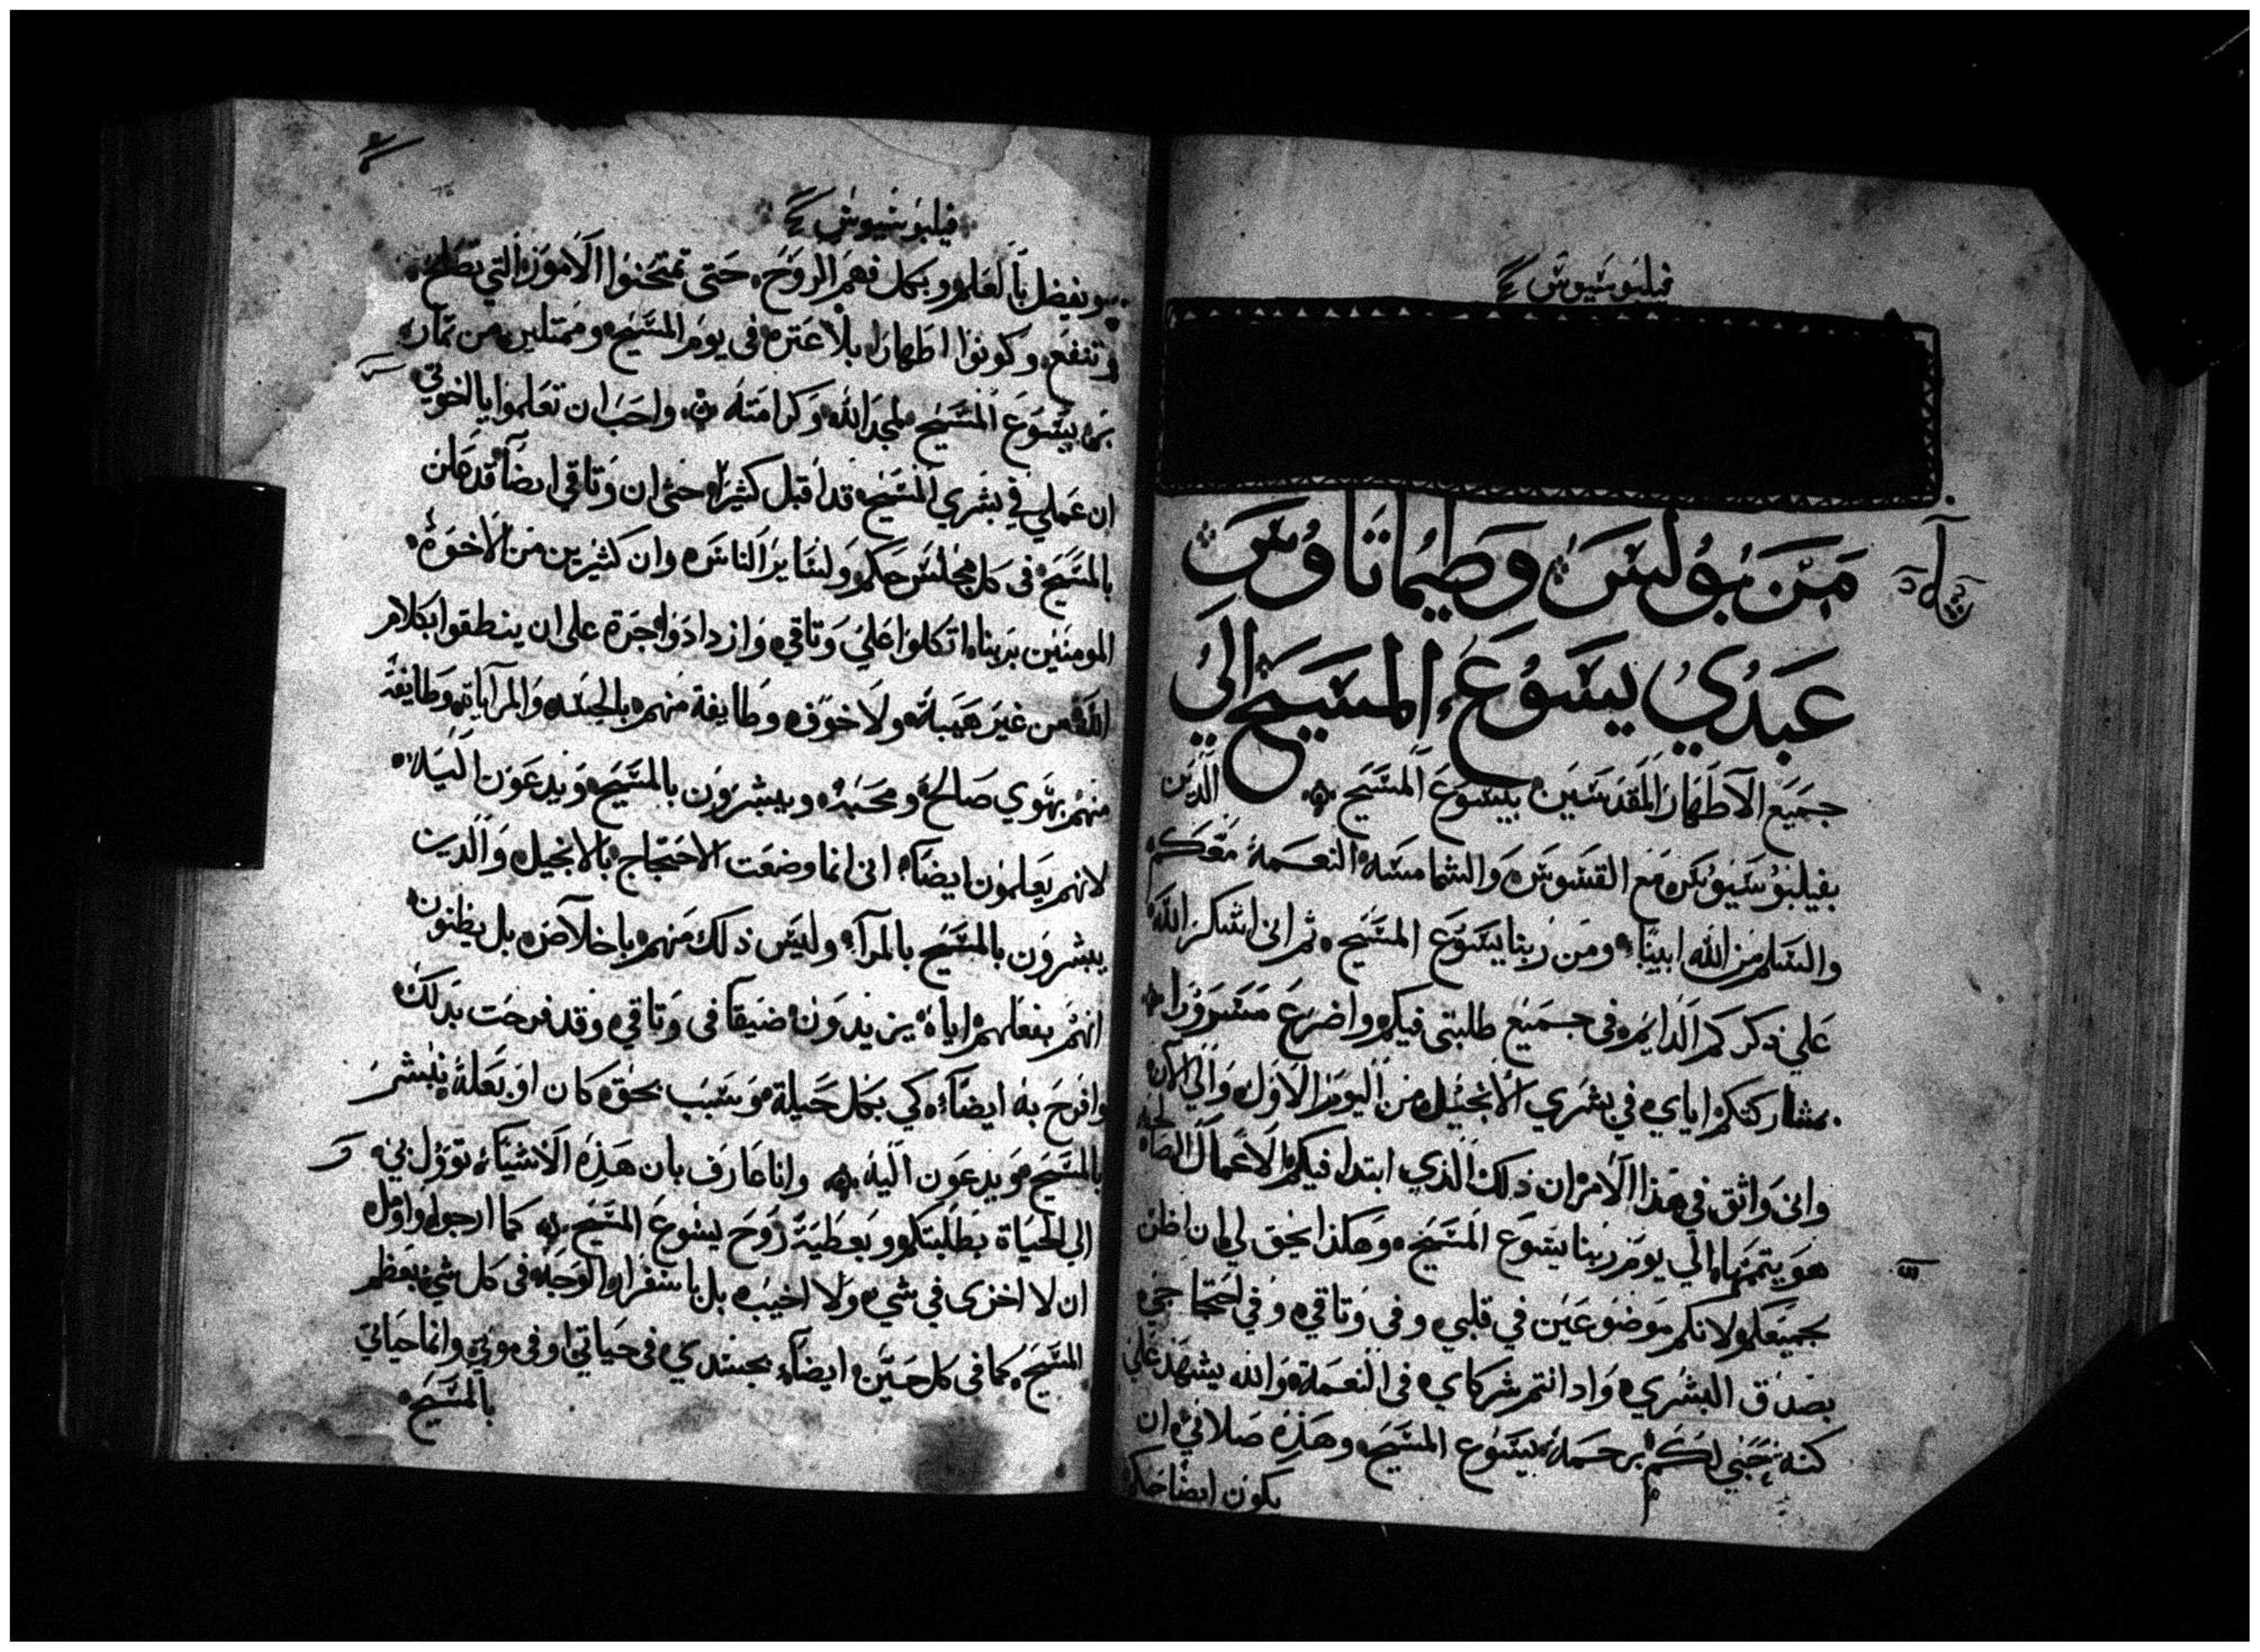 فيلبوسيوس
من بولس وطيماتاوس
عبدي يسوع المسيح الي
جميع الاطهار المقدسين بيسوع المسيح الدين
بفيلبوسيوس مع القسوس والشمامسه النعمة معكم
والسلم من الله ابينا ومن ربنا يسوع المسيح ثم انى اشكر الله
علي دكركم الدايم فى جميع طلبتى فيكم واضرع مسرورا
بمشاركتكم اياي في بشري الانجيل من اليوم الاول والي الان
وانى واثق في هذا الامر ان ذلك الذي ابتدا فيكم الاعمال الصالحة
هو يتممها الي يوم ربنا يسوع المسيح وهكذا يحق لي ان اظن
بجميعكم لانكم موضوعين في قلبي وفى وتاقي وفي احتجاجي
بصدق البشري واد انتم شركاي فى النعمة والله يشهد علي
كنه حبي لكم برحمة يسوع المسيح وهذه صلاتي ان
يكون ايضا حبكم
فيلبوسيوس
ويفضل بالعلم وبكل فهم الروح حتى تمتحنوا الامور التي تصلح
وتنفع وكونوا اطهارا بلا عتره فى يوم المسيح وممتلين من تمار
بر يسوع المسيح لمجد الله وكرامته واحب ان تعلموا يا اخوتي
ان عملي في بشري المسيح قد اقبل كثيرا حتى ان وتاقي ايضا قد علن
بالمسيح فى كل مجلس حكم ولساير الناس وان كثيرين من الاخوة
المومنين بربنا اتكلوا علي وتاقي وازدادوا جرة على ان ينطقوا بكلام
الله من غير هيبة ولا خوف وطايفة منهم بالحسد والمرايات وطايفة
منهم بهوي صالح ومحبة ويبشرون بالمسيح ويدعون اليه
لانهم يعلمون ايضا انى انما وضعت الاحتجاج بالانجيل والدين
يبشرون بالمسيح بالمرا وليس ذلك منهم باخلاص بل يظنون
انهم بفعلهم اياه يزيدون ضيقا فى وتاقي وقد فرحت بدلك
وافرح به ايضا كي بكل حيلة وسبب بحق كان او بعلة يبشر
بالمسيح ويدعون اليه وانا عارف بان هذه الاشيا توول بي
الي الحياة بطلبتكم وبعطية روح يسوع المسيح كما ارجو واومل
ان لا اخزى في شي ولا اخيب بل باسفرار الوجه فى كل شي يعظم
المسيح كما فى كل حين ايضا بجسدي فى حياتي او فى موتي وانما حياتي
بالمسيح